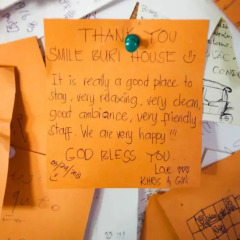 THANK YOU
SMILE BURI HOUSE
It is really a good place to
stay, very relaxing, very clean,
good ambiance, very friendly
staff. We are very happy!!!
GOD BLESS YOU.
LOVE